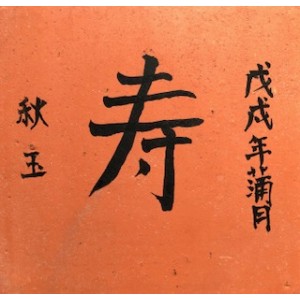 戊戌年蒲月
寿
秋玉